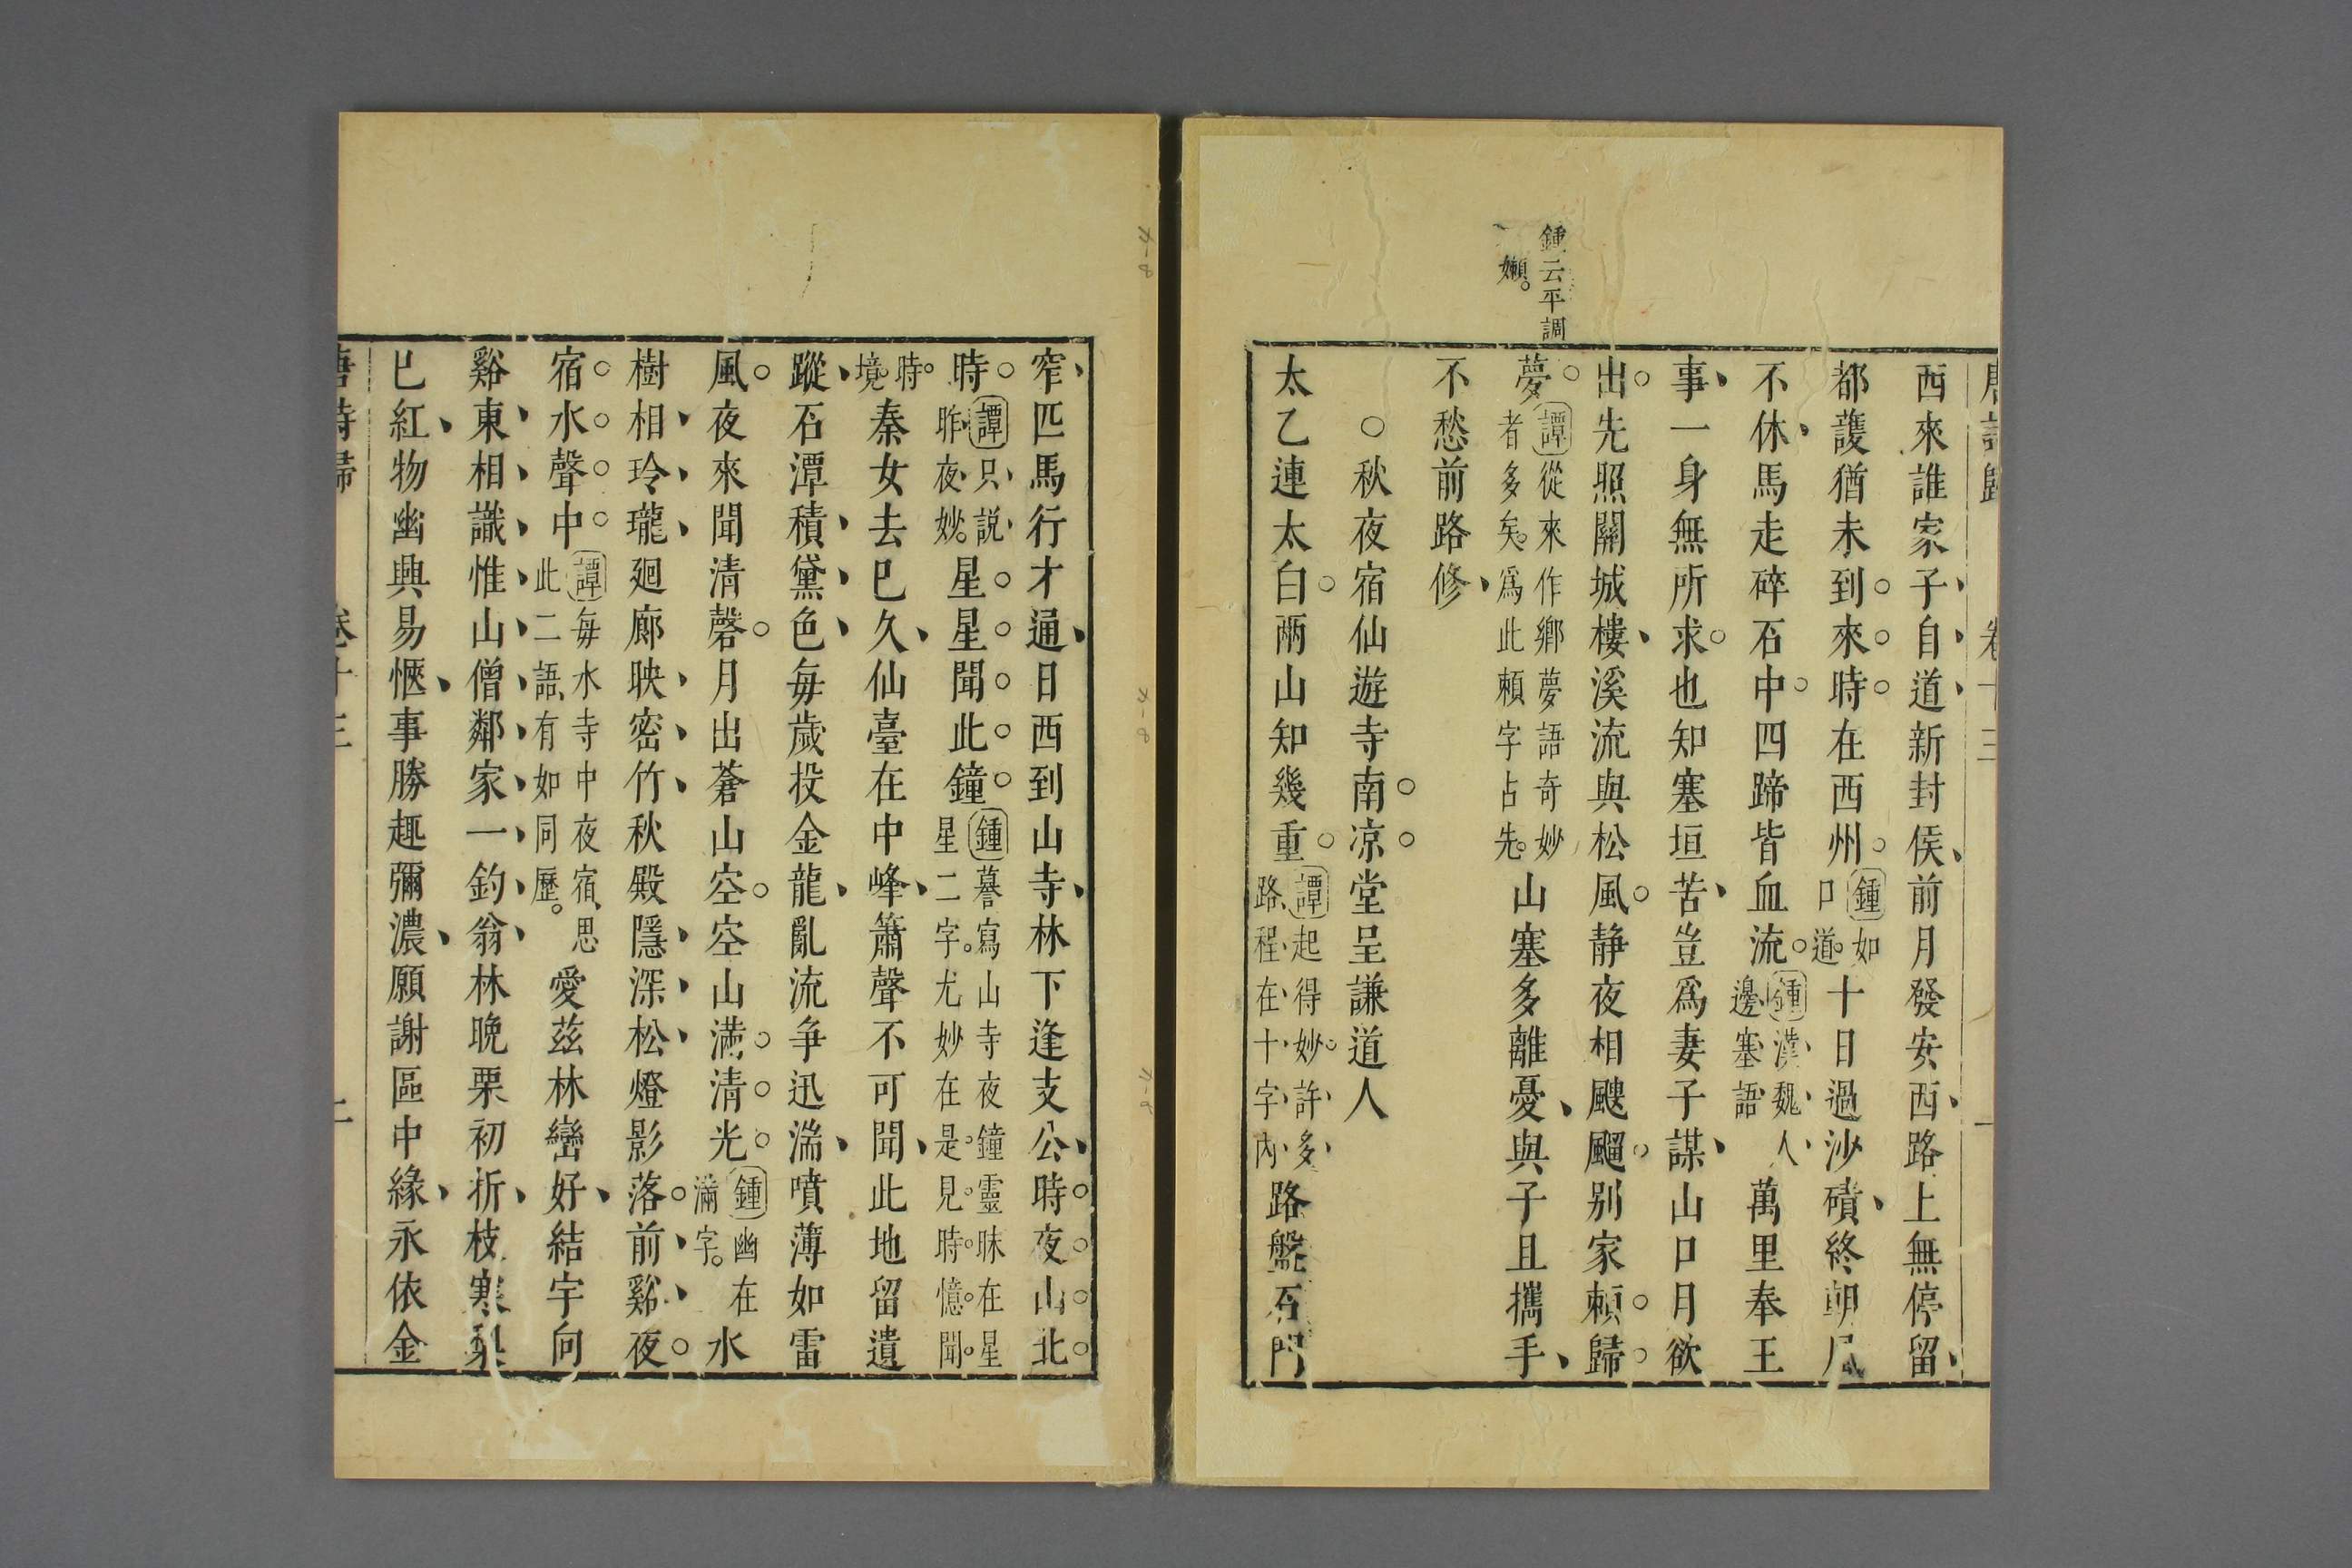 唐詩歸　卷十三
西來誰家子自道新封侯前月發安西路上無停留
都護猶未到來時在西州
鍾如
口道
十日過沙磧終朝風
不休馬走碎石中四蹄皆血流
鍾漢魏人
邊塞語
萬里奉王
事一身無所求也知塞垣苦豈爲妻子謀山口月欲
出先照關城樓溪流與松風靜夜相颼飀别家賴歸
鍾云平調
嬾
夢
譚從來作鄉夢語奇妙
者多矣爲此賴字占先
山塞多離憂與子且攜手
不愁前路修
○秋夜宿仙遊寺南凉堂呈謙道人
太乙連太白兩山知幾重
譚起得妙許多
路程在十字內
路盤石門
窄匹馬行才通日西到山寺林下逢支公時夜山北
時
譚只説
昨夜妙
星星聞此鐘
鍾暮寫山寺夜鐘靈昧在星
星二字尤妙在是見時憶聞
時
境
秦女去已久仙臺在中峰簫聲不可聞此地留遺
蹤石潭積黛色每歲投金龍亂流争迅湍噴薄如雷
風夜來聞清磬月出蒼山空空山滿清光
鍾幽在
滿字
水
樹相玲瓏廻廊映密竹秋殿隱深松燈影落前谿夜
宿水聲中
譚每水寺中夜宿思
此二語有如同歷
愛茲林巒好結宇向
谿東相識惟山僧鄰家一釣翁林晚栗初折枝寒梨
已紅物幽興易愜事勝趣彌濃願謝區中緣永依金
唐詩歸　卷十三